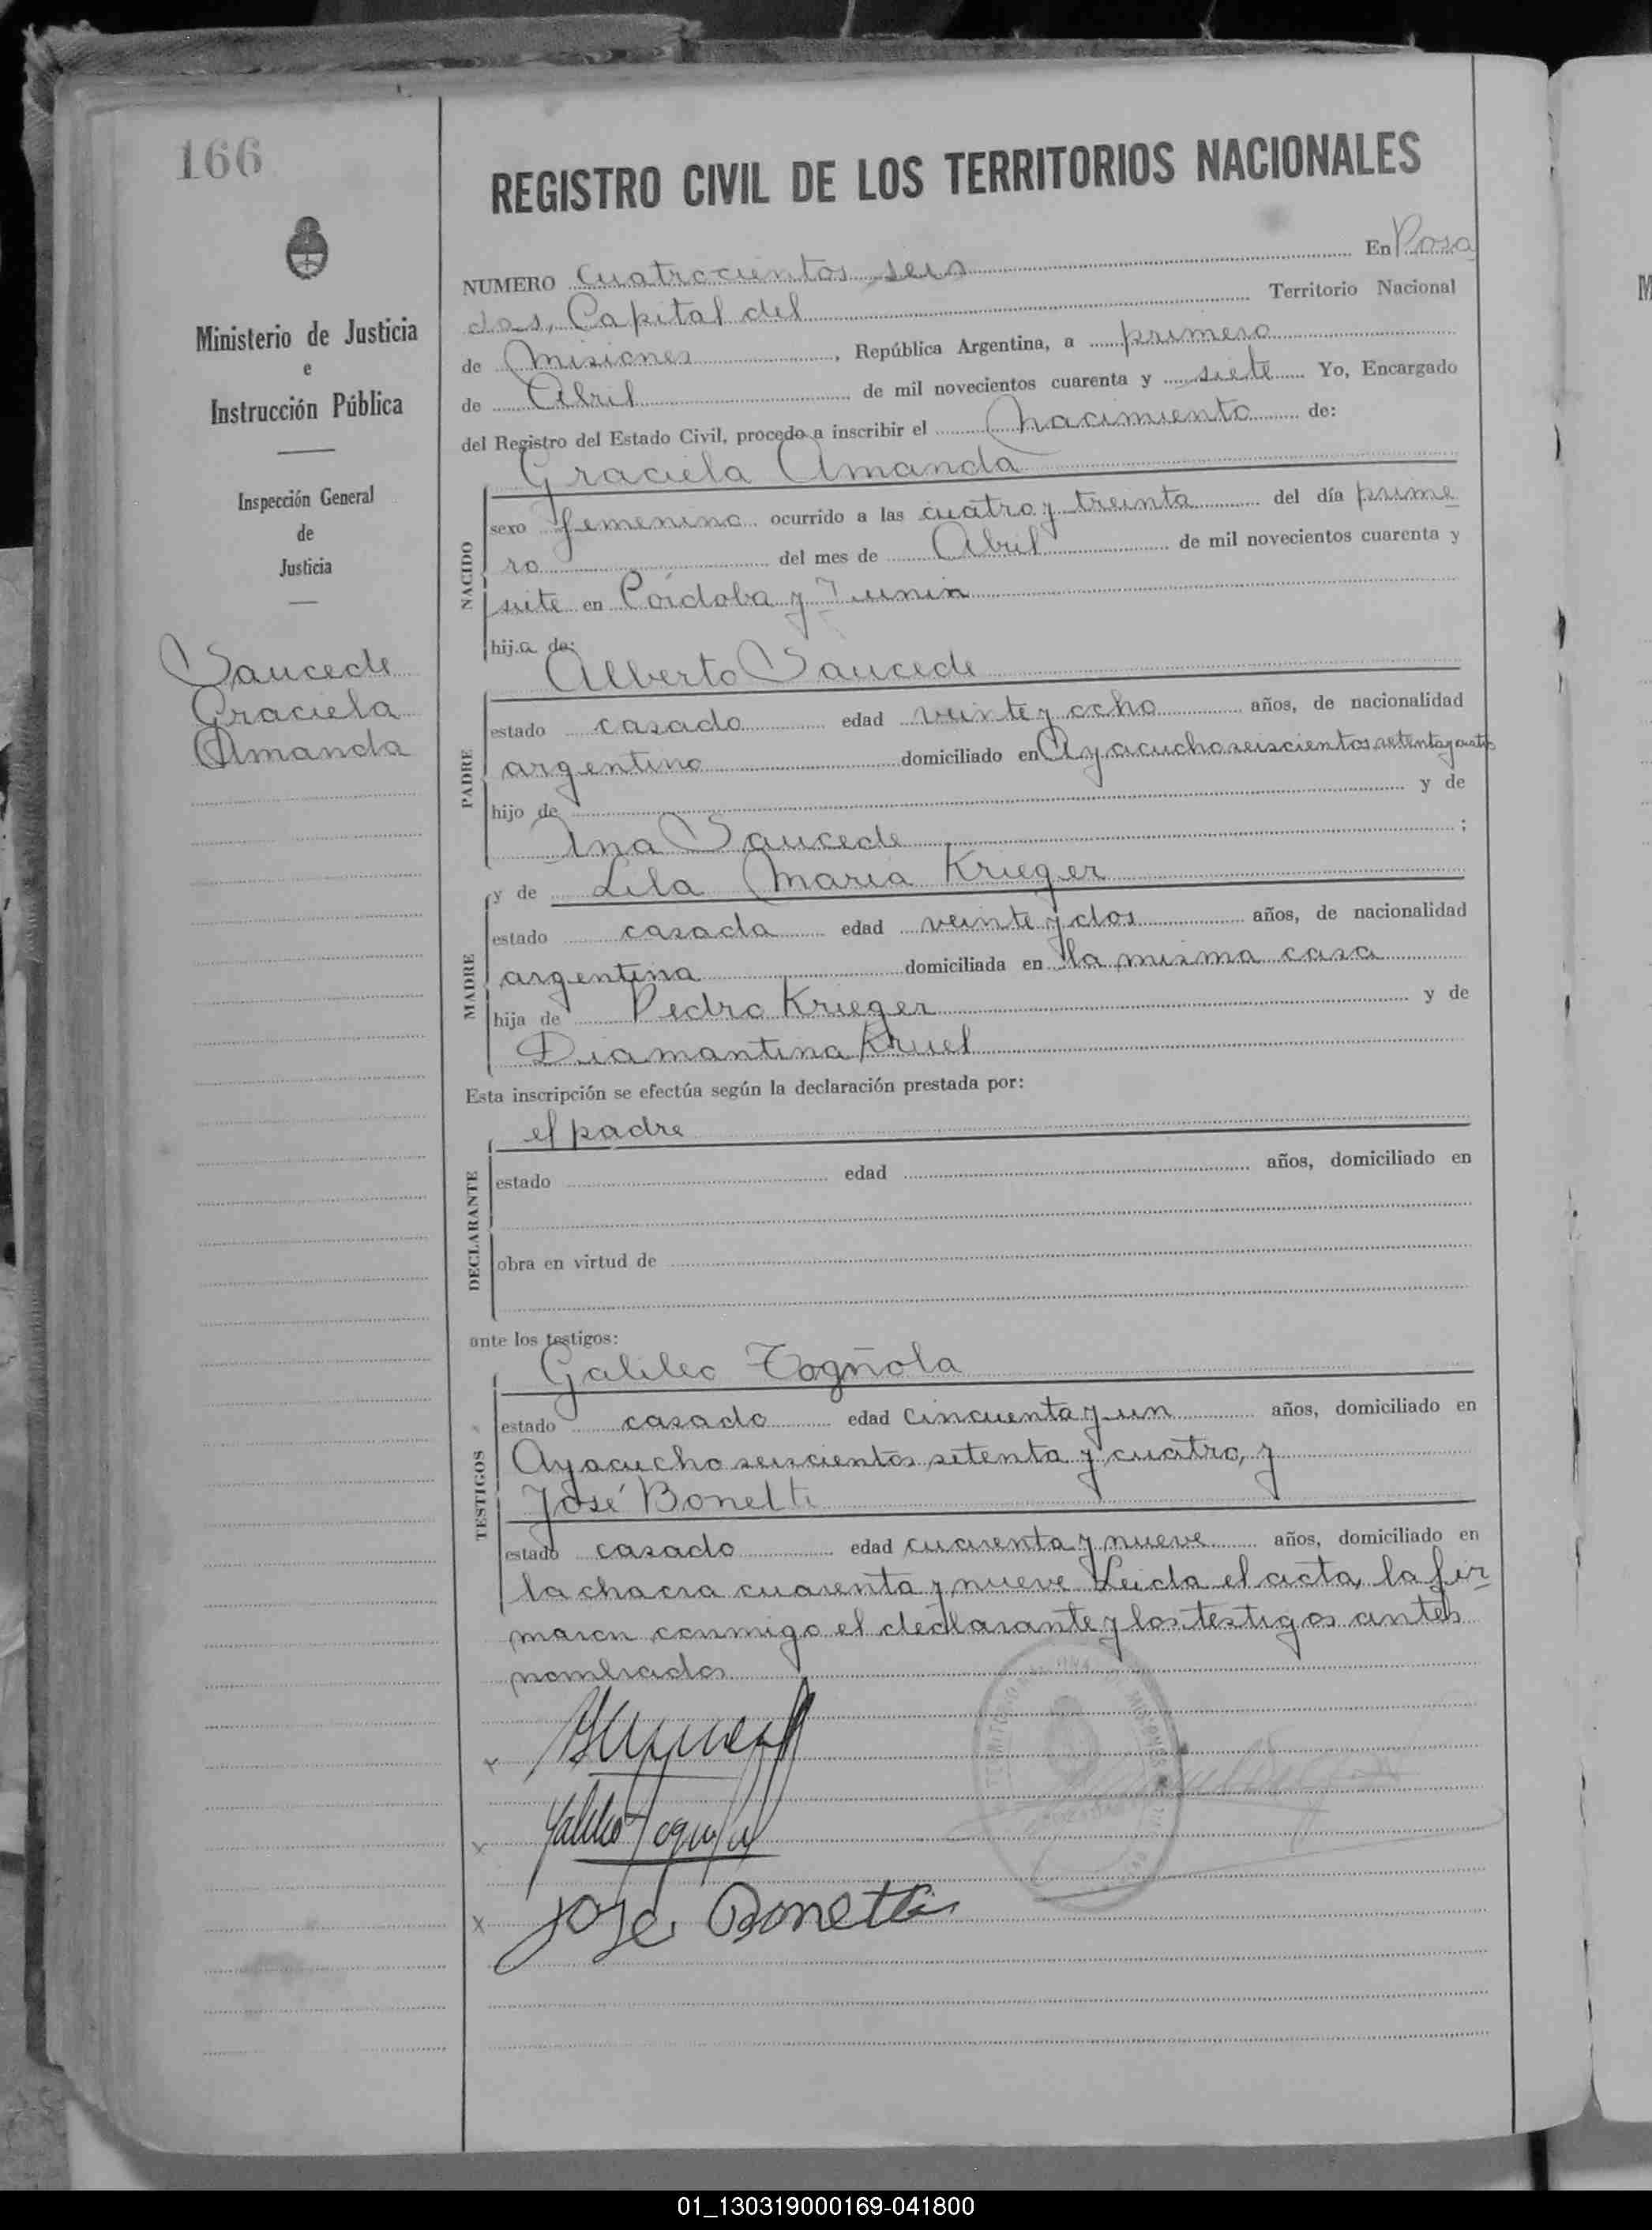 166
Ministerio de Justicia
e
Instrucción Pública
Inspección General
de
Justicia
Saucede
Graciela
Amanda
REGISTRO CIVIL DE LOS TERRITORIOS NACIONALES
NUMERO Cuatrocientos seis En Posa
das, Capital del Territorio Nacional
de Misiones, República Argentina, a primero
de Abril de mil novecientos cuarenta y siete Yo, Encargado
del Registro del Estado Civil, procedo a inscribir el nacimiento de:
Graciela Amanda
NACIDO
sexo femenino ocurrido a las cuatro y treinta del día prime
ro del mes de Abril de mil novecientos cuarenta y
siete en Córdoba y Junin
hij.a de:
Alberto Saucede
PADRE
estado casado edad veinte y ocho años, de nacionalidad
argentino domiciliado en Ayacucho seiscientos setenta y cuatro
hijo de y de
Ana Saucede ;
MADRE
y de Lila Maria Krieger
estado casada edad veinte y dos años, de nacionalidad
argentina domiciliada en la misma casa
hija de Pedro Krieger y de
Diamantina Kruel
Esta inscripción se efectúa según la declaración prestada por:
el padre
DECLARANTE
estado edad años, domiciliado en
obra en virtud de
ante los testigos:
Galileo Togñola
TESTIGOS
estado casado edad cincuenta y un años, domiciliado en
Ayacucho seiscientos setenta y cuatro, y
José Bonetti
estado casado edad cuarenta y nueve años, domiciliado en
la chacra cuarenta y nueve Leida el acta, la fir
maron conmigo el declarante y los testigos antes
nombrados
Galileo Tognola
José Bonetti
01_130319000169-041800